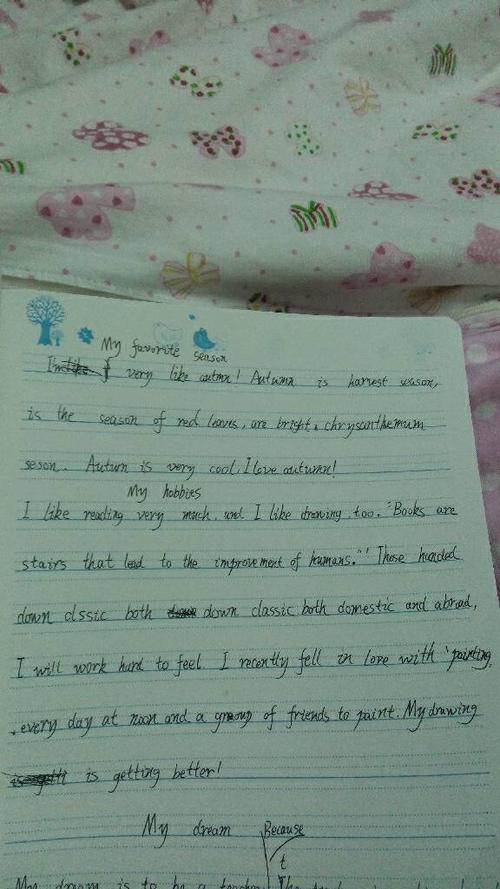 My favorite season
I very like autmn! Autumn is harvest season,
is the season of red leaves, are bright, chrysanthemum
seson. Autumn is very cool, I love autumn!
My hobbies
I like reading very much, and I like drawing, too. "Books are
stairs that lead to the improvement of humans." Those handed
down clssic both down classic both domestic and abroad,
I will work hard to feel I recently fell in love with painting,
every day at noon and a group of friends to paint. My drawing
is getting better!
My dream Because
My dream is to be a teacher